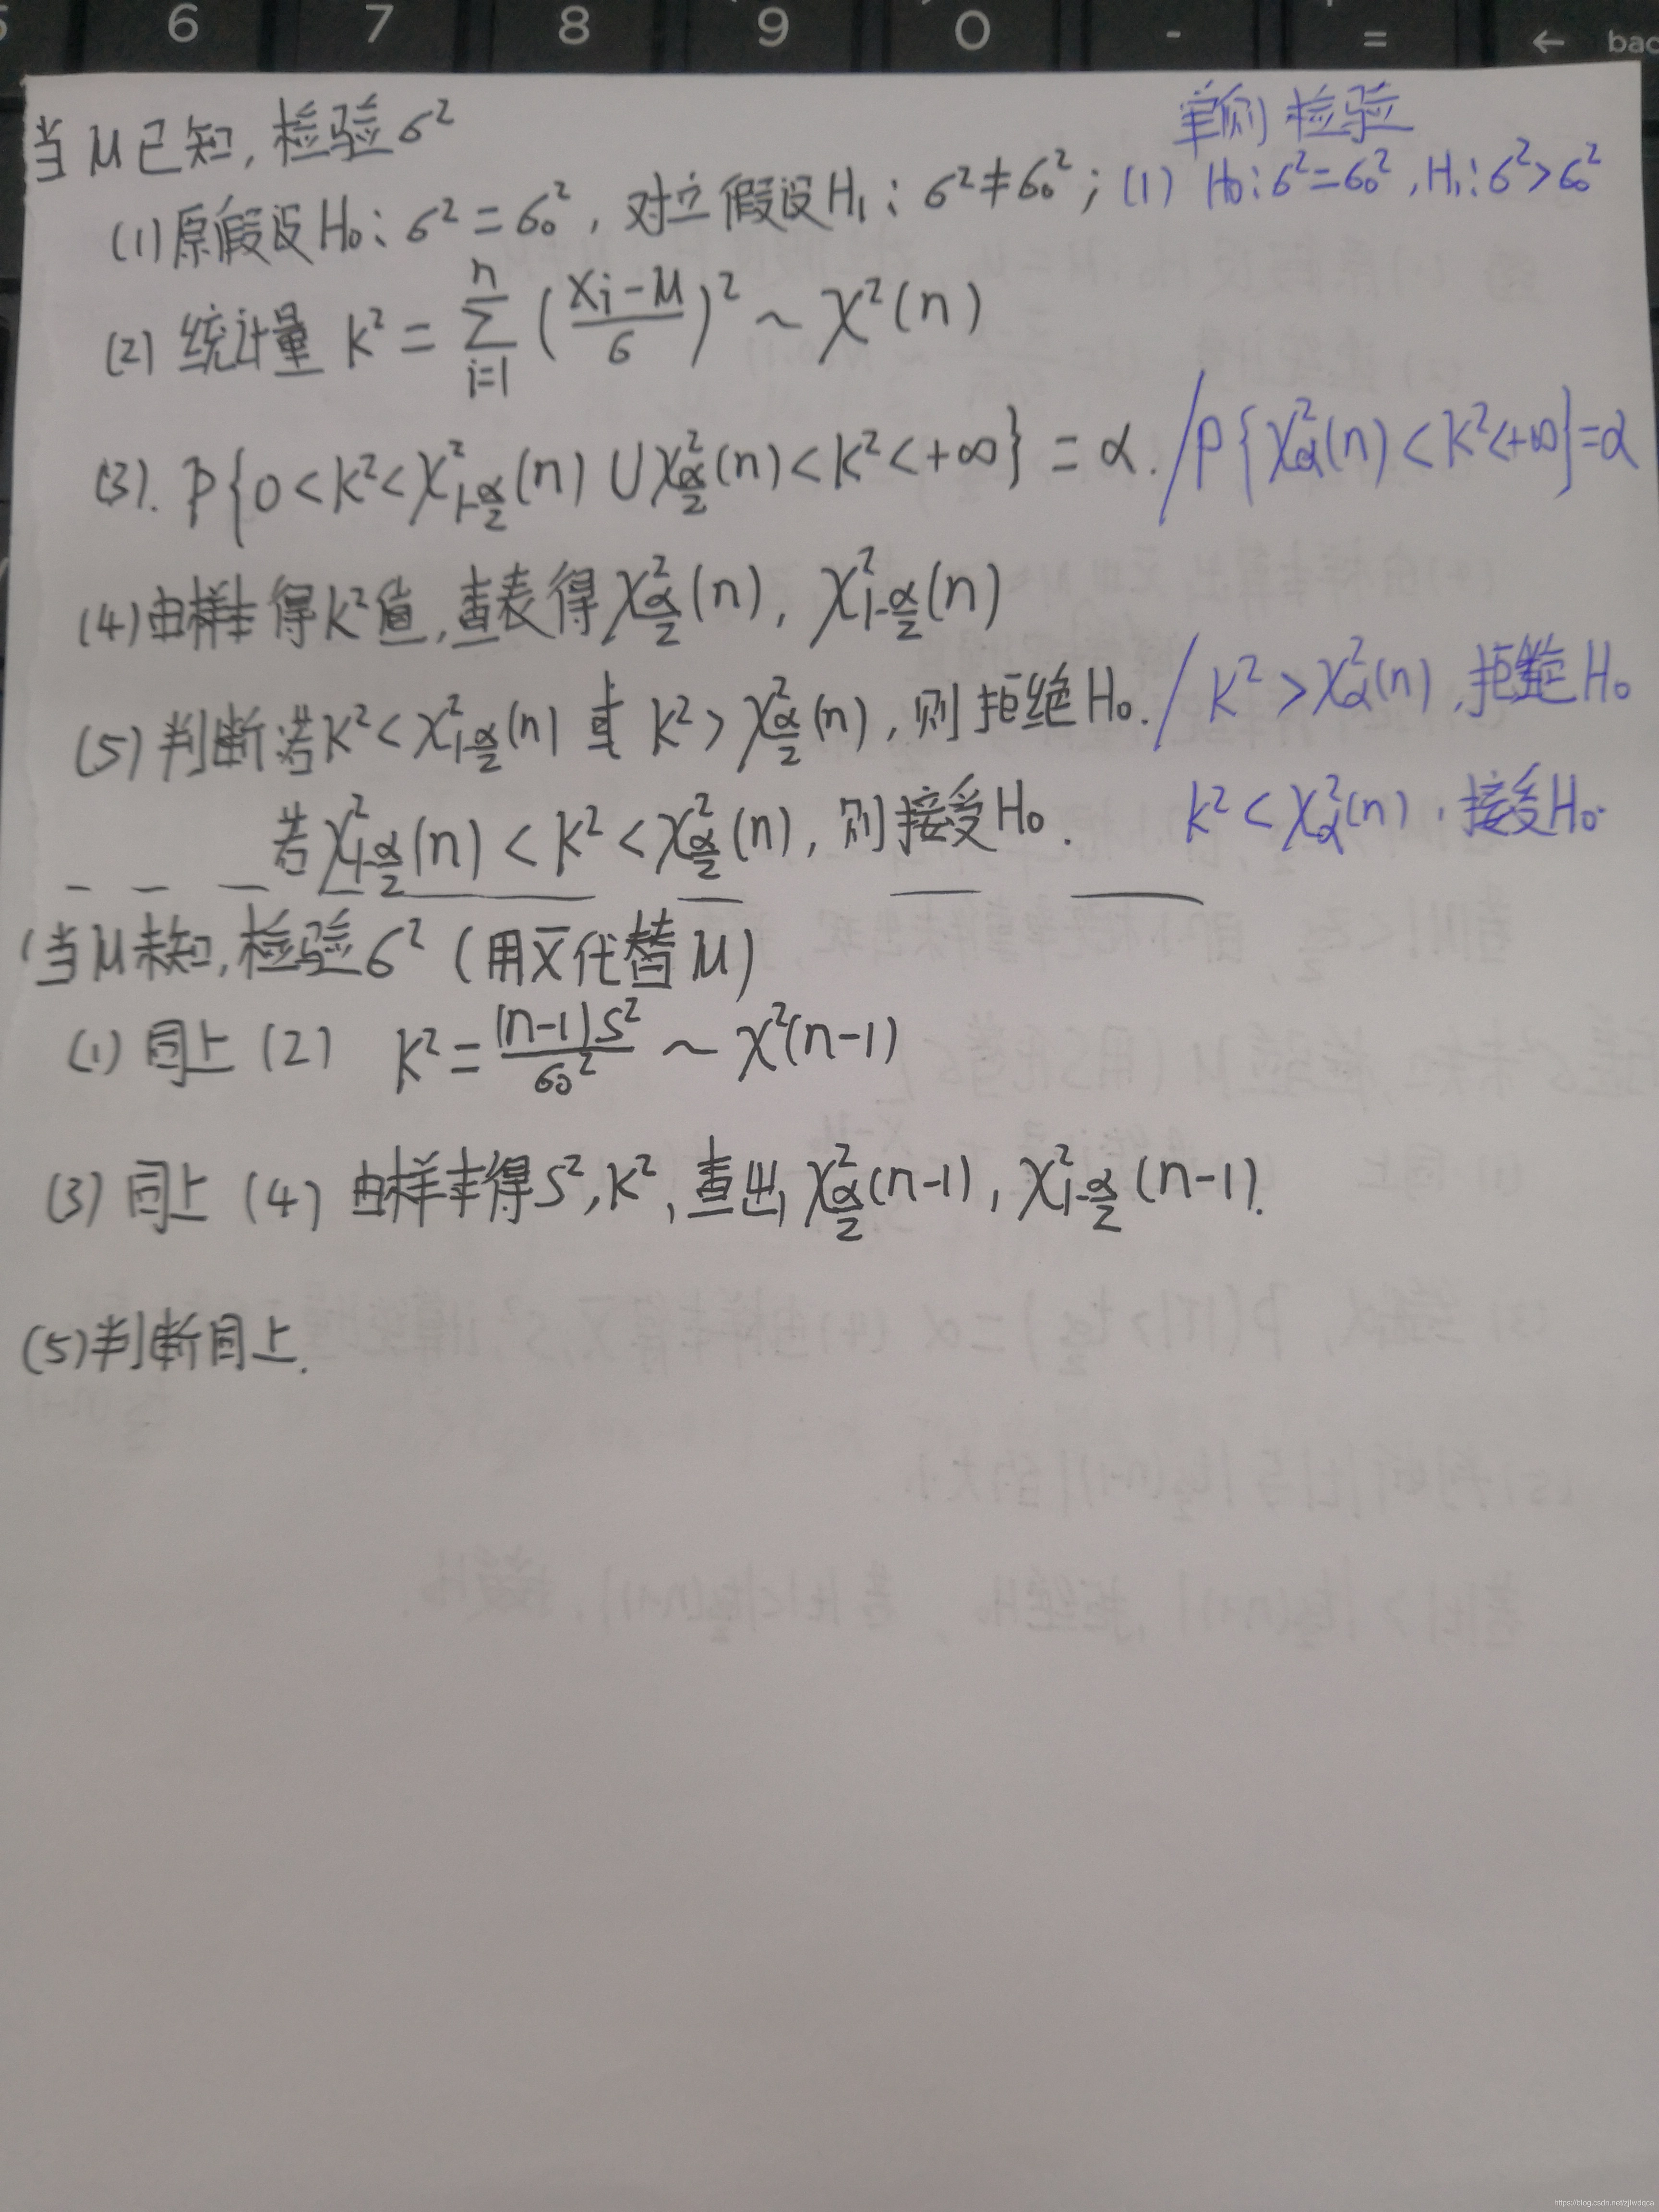 6 7 8 9 0 - = ← bac
单侧检验
当μ已知,检验σ²
(1)原假设H₀:σ²=σ₀²,对立假设H₁:σ²≠σ₀²;(1) H₀:σ²=σ₀²,H₁:σ²>σ₀²
(2) 统计量 K² = ∑_{i=1}^{n} ((Xi-μ)/σ)² ~ χ²(n)
(3). P{0<K²<χ²_{1-α/2}(n) ∪ χ²_{α/2}(n)<K²<+∞} = α. / P{χ²_α(n)<K²<+∞}=α
(4)由样本得K²值,查表得χ²_{α/2}(n), χ²_{1-α/2}(n)
(5)判断若K²<χ²_{1-α/2}(n) 或 K²>χ²_{α/2}(n),则拒绝H₀. / K²>χ²_α(n),拒绝H₀
若χ²_{1-α/2}(n)<K²<χ²_{α/2}(n),则接受H₀. K²<χ²_α(n),接受H₀.
当μ未知,检验σ²(用X̄代替μ)
(1) 同上 (2) K²=(n-1)S²/σ₀² ~ χ²(n-1)
(3) 同上 (4) 由样本得S²,K²,查出χ²_{α/2}(n-1), χ²_{1-α/2}(n-1).
(5)判断同上.
https://blog.csdn.net/zjlwdqca